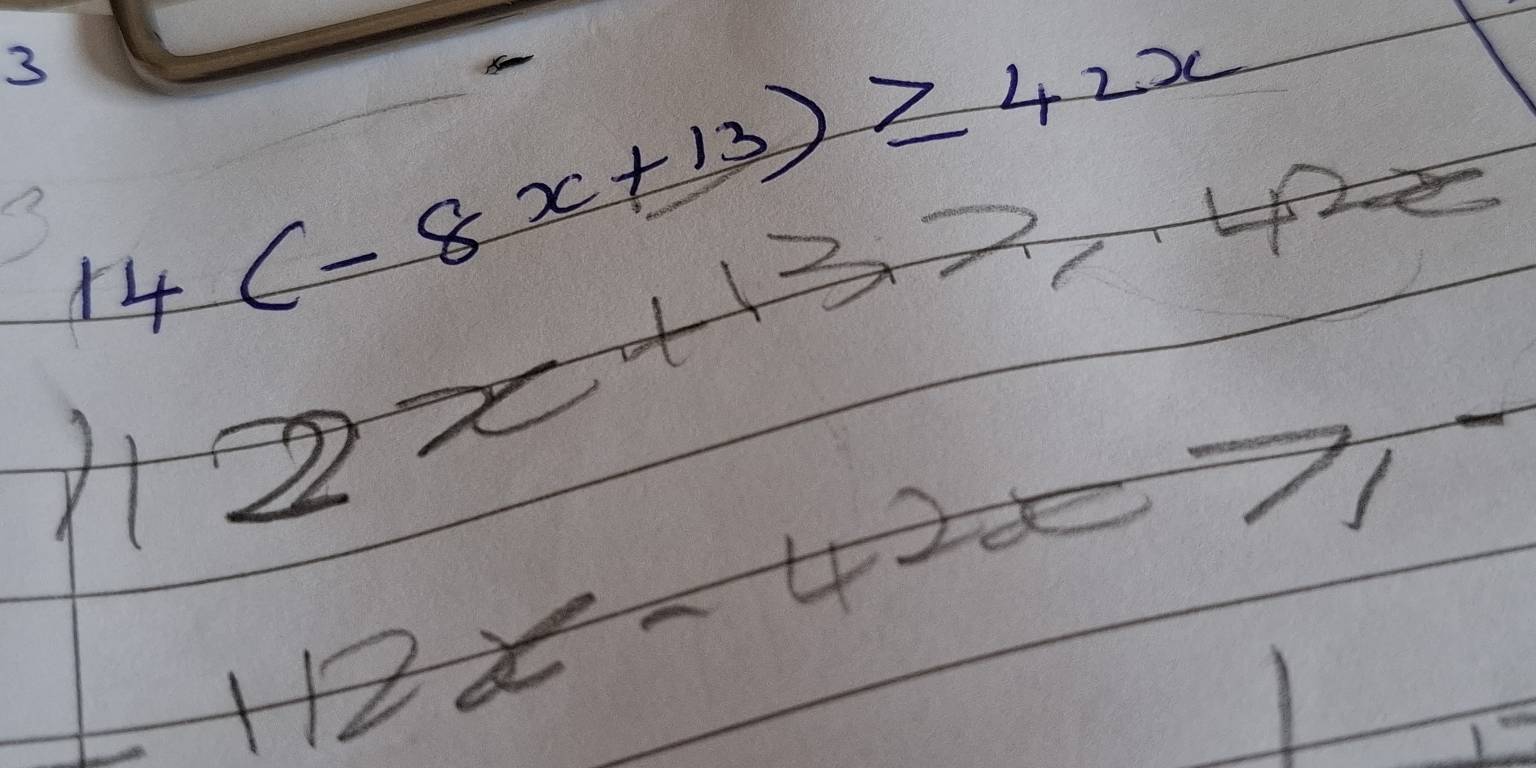 3
14 (-8x+13) ≥ 42x
3
112x+13 ≥ 42x
- 112x - 42x ≥ -